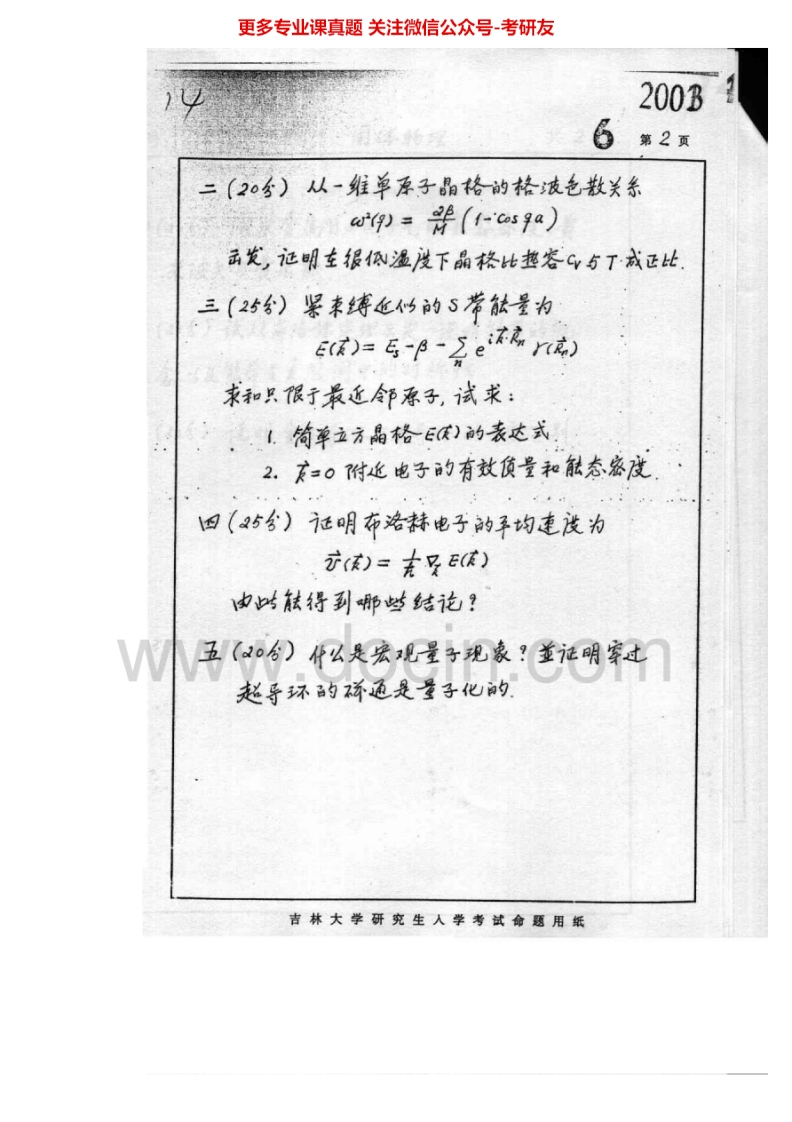 更多专业课真题 关注微信公众号-考研友
14
2003
6 第 2 页
二(20分) 从一维单原子晶格的格波色散关系
ω²(q) = 2β/M (1-cos qa)
出发,证明在很低温度下晶格比热容 Cv 与 T 成正比.
三(25分) 紧束缚近似的 S 带能量为
E(k⃗) = Es - β - Σn e^{ik⃗·R⃗n} γ(R⃗n)
求和只限于最近邻原子,试求:
1. 简单立方晶格 E(k⃗) 的表达式
2. k⃗=0 附近电子的有效质量和能态密度.
四(25分) 证明布洛赫电子的平均速度为
v⃗(k⃗) = 1/ħ ∇k E(k⃗)
由此能得到哪些结论?
www.docin.com
五(20分) 什么是宏观量子现象?並证明穿过
超导环的磁通是量子化的.
吉林大学研究生入学考试命题用纸